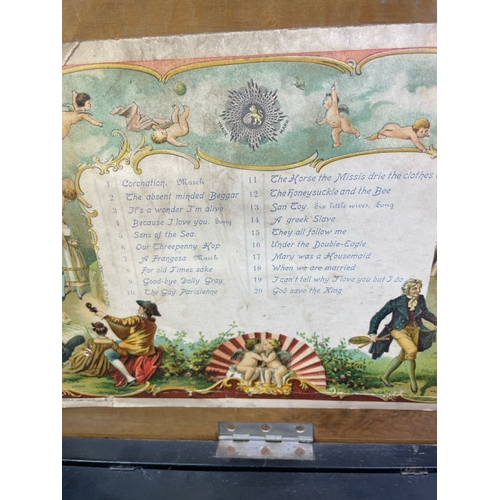 1 Coronation. March
2 The absent minded Beggar
3 It's a wonder I'm alive
4 Because I love you. Song
5 Sons of the Sea.
6 Our Threepenny Hop
7 A Frangesa March
8 For old Times sake
9 Good-bye Dolly Gray
10 The Gay Parisienne
11 The Horse the Missis drie the clothes
12 The honeysuckle and the Bee
13 San Toy. Six little wives. Song
14 A greek Slave
15 They all follow me
16 Under the Double-Eagle
17 Mary was a Housemaid
18 When we are married
19 I can't tell why I love you but I do
20 God save the King